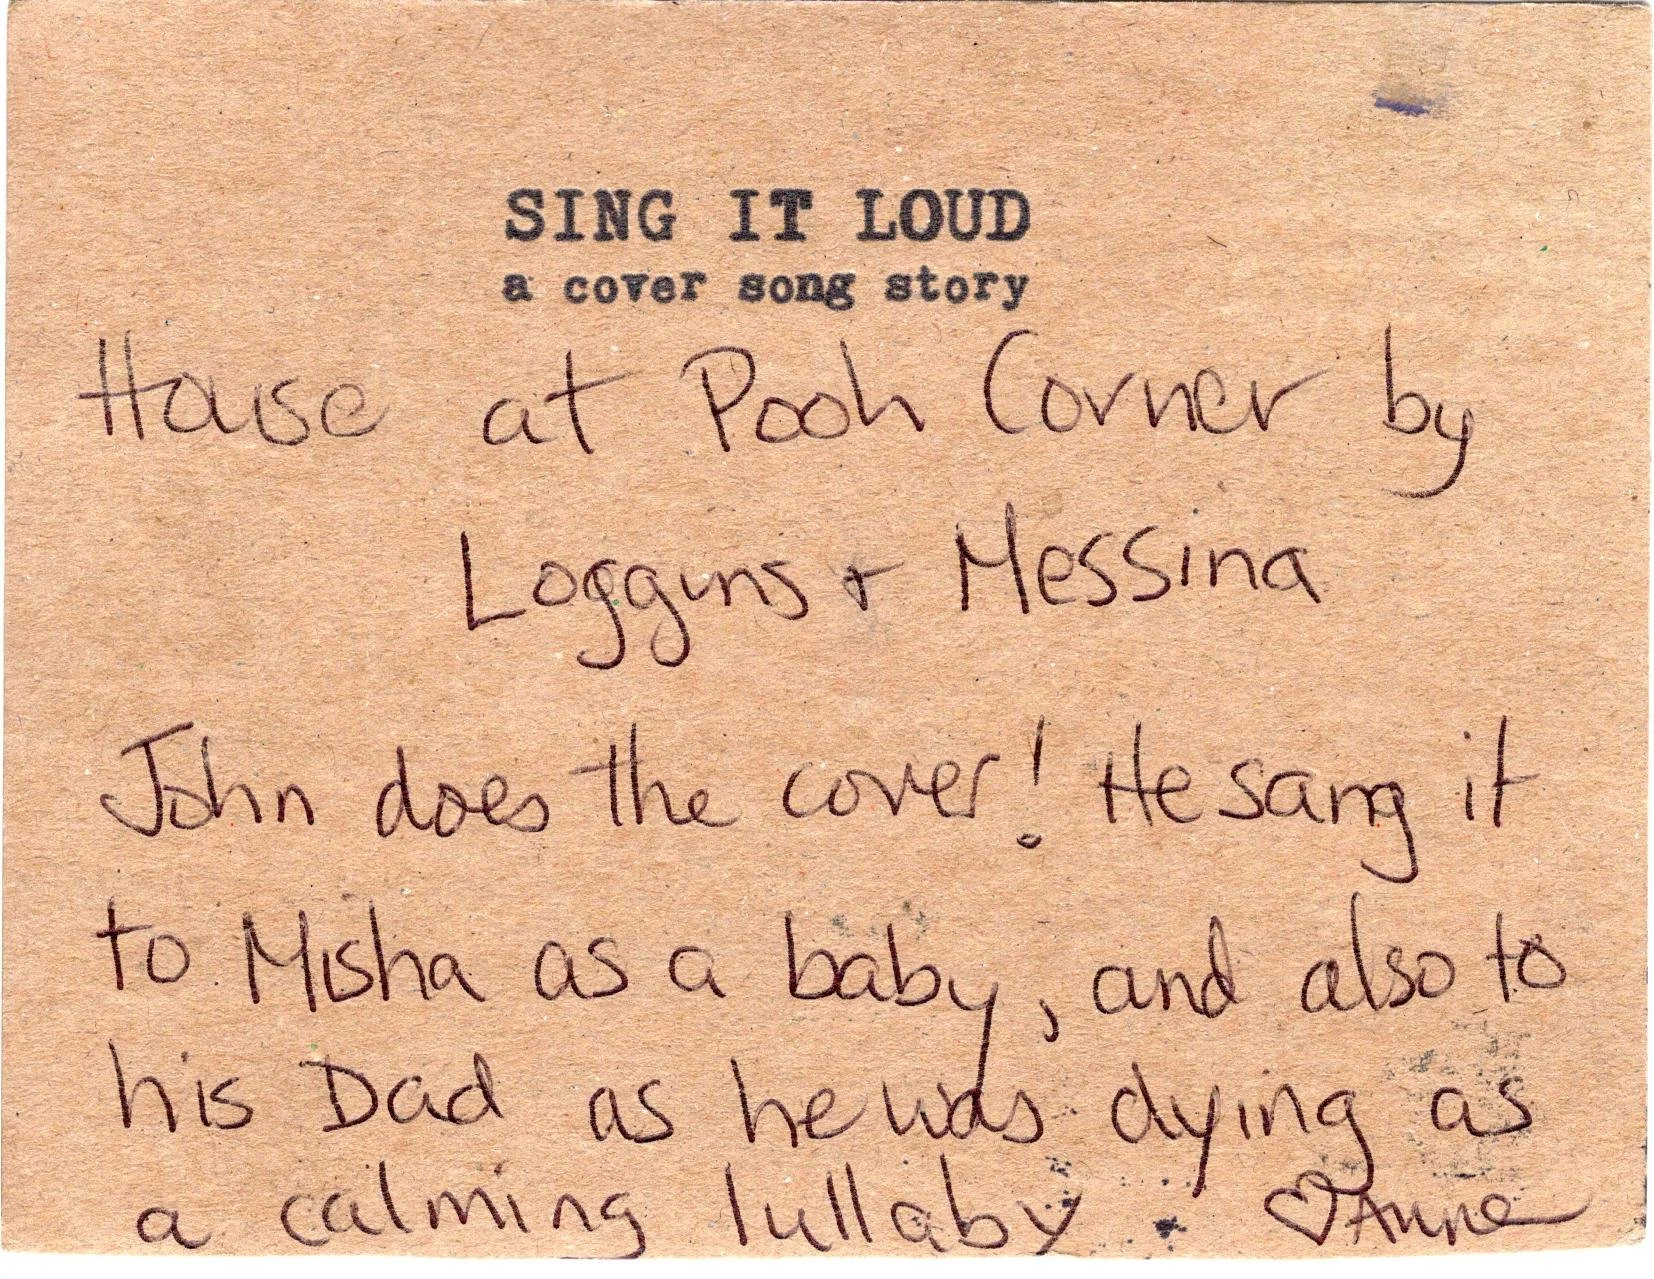 SING IT LOUD
a cover song story
House at Pooh Corner by
Loggins + Messina
John does the cover! He sang it
to Misha as a baby, and also to
his Dad as he was dying as
a calming lullaby. ♡Anne